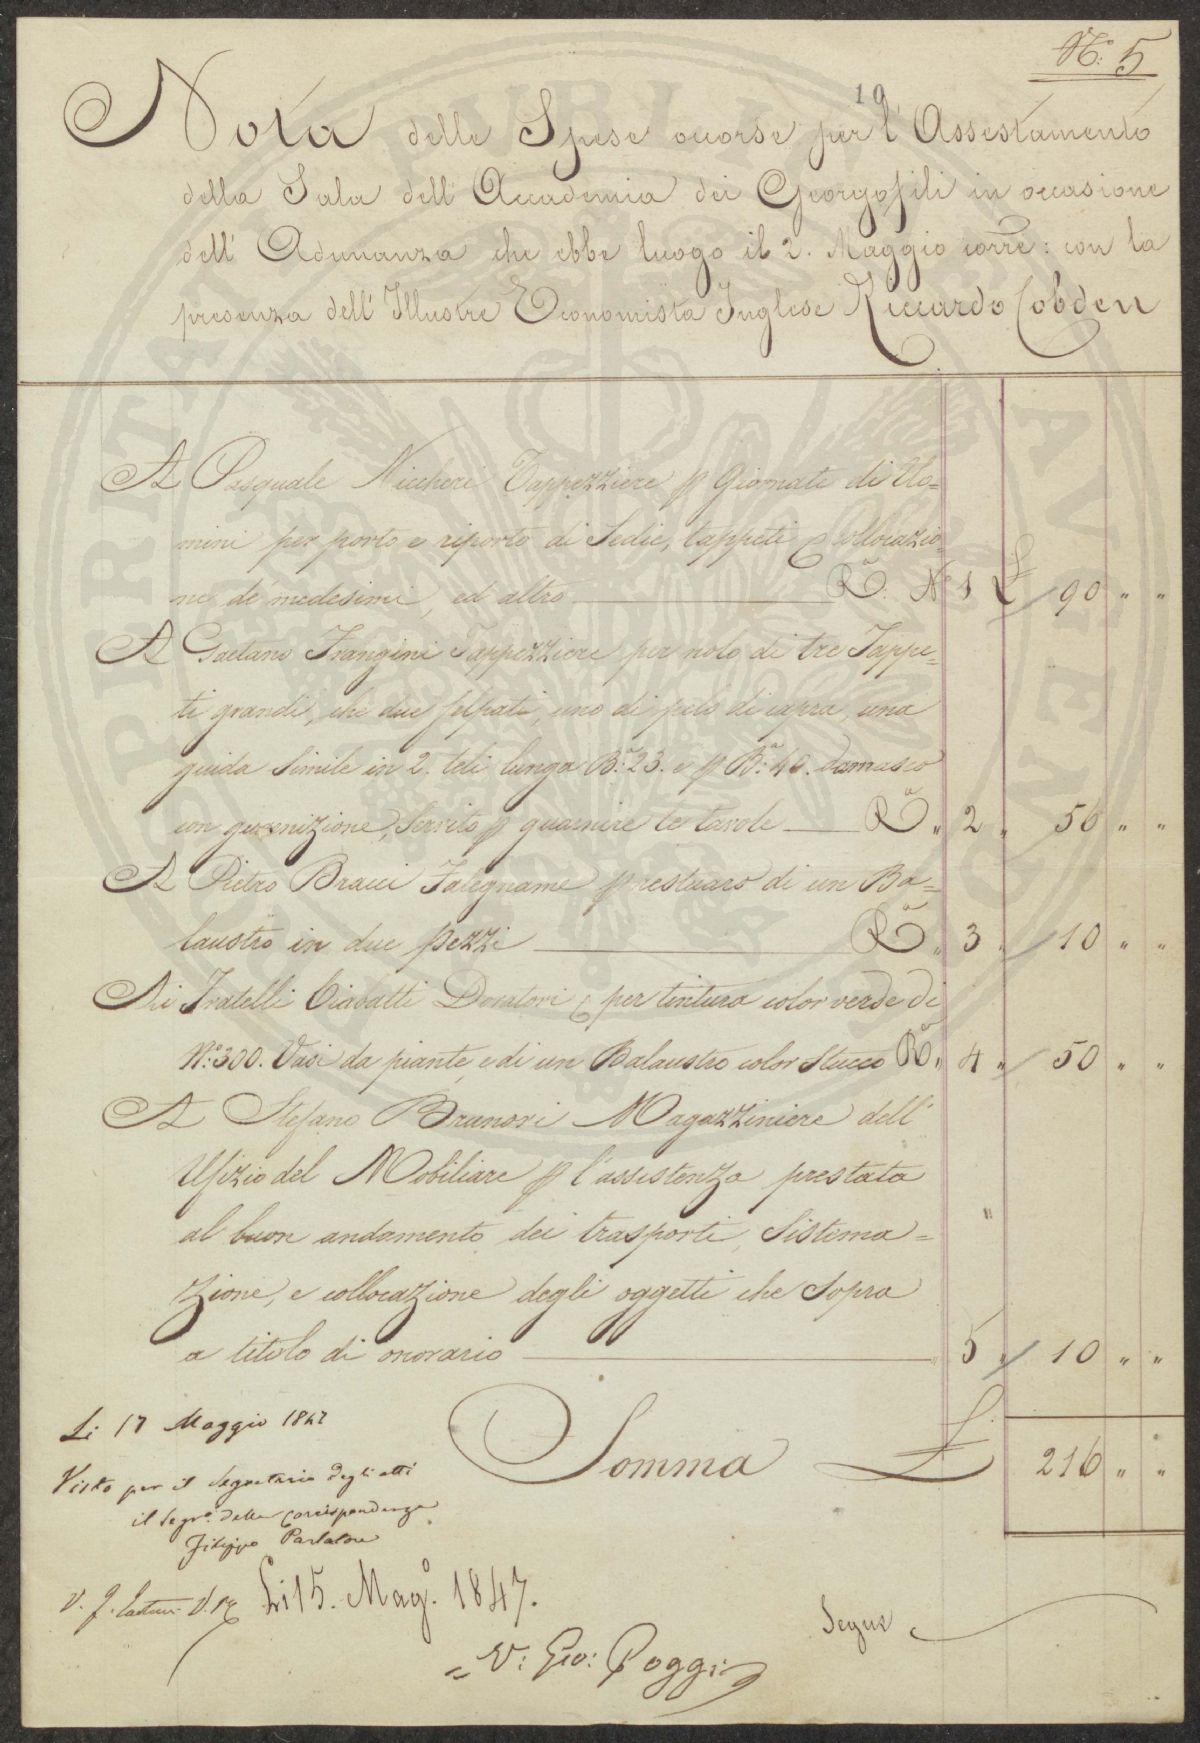 N.º 5
19
Nota delle Spese occorse per l'Assestamento
della Sala dell'Accademia dei Georgofili in occasione
dell'Adunanza che ebbe luogo il 2. Maggio corr.e: con la
presenza dell'Illustre Economista Inglese Riccardo Cobden
A Pasquale Niccheri Tappezziere p Giornate di Uo=
mini per porto e riporto di Sedie, tappeti e Collocazio=
ne de medesimi, ed altro R.a N.º 1 £ 90 " "
A Gaetano Frangini Tappezziere per nolo di tre Tappe=
ti grandi, che due felpati, uno di pelo di capra, una
guida simile in 2. teli lunga B.a 23. e p B.a 40. damasco
con guarnizione, Servito p guarnire le tavole R.a " 2 " 56 " "
A Pietro Bracci Falegname p restauro di un Ba=
laustro in due pezzi R.a " 3 " 10 " "
Ai Fratelli Ciabatti Doratori p per tintura color verde di
N.º 300. Vasi da piante, e di un Balaustro color Stucco R.a " 4 " 50 " "
A Stefano Brunori Magazziniere dell'
Ufizio del Mobiliare p l'assistenza prestata
al buon andamento dei trasporti, Sistema=
zione, e collocazione degli oggetti che Sopra "
a titolo di onorario " 5 " 10 " "
Somma £ 216 " "
Li 17 Maggio 1847
Visto per il Segretario degli atti
il Segr.o della Corrispondenza
Filippo Parlatore
Li 15. Mag.o 1847.
V: Gio: Poggi
Segue